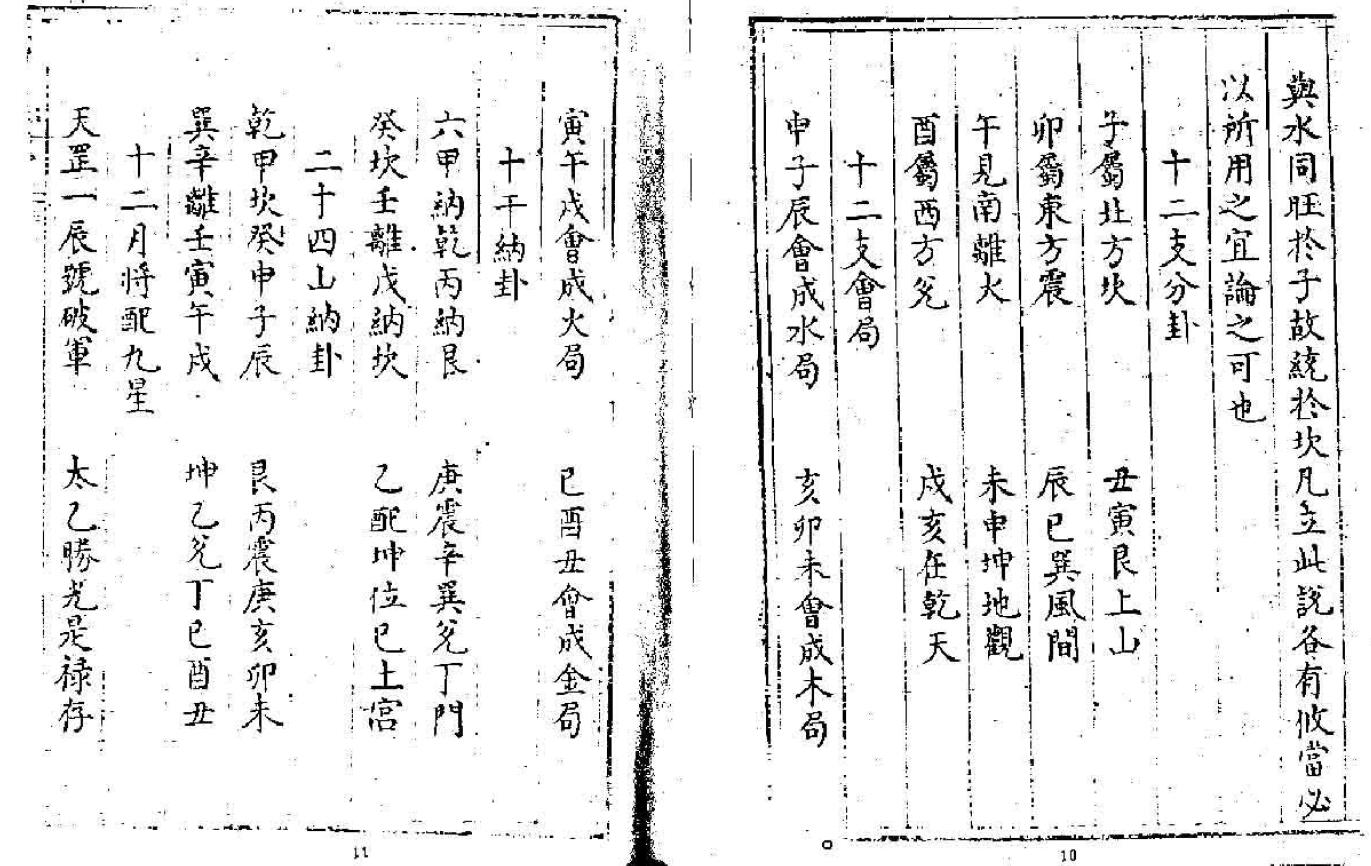 與水同旺於子故統於坎凡立此說各有攸當必
以所用之宜論之可也
十二支分卦
子屬北方坎 丑寅艮上山
卯屬東方震 辰巳巽風間
午見南離火 未申坤地觀
酉屬西方兌 戌亥在乾天
十二支會局
申子辰會成水局 亥卯未會成木局
10
寅午戌會成火局 巳酉丑會成金局
十干納卦
六甲納乾丙納艮 庚震辛巽兌丁門
癸坎壬離戊納坎 乙配坤位己土宮
二十四山納卦
乾甲坎癸申子辰 艮丙震庚亥卯未
巽辛離壬寅午戌 坤乙兌丁巳酉丑
十二月將配九星
天罡一辰號破軍 太乙勝光是祿存
11